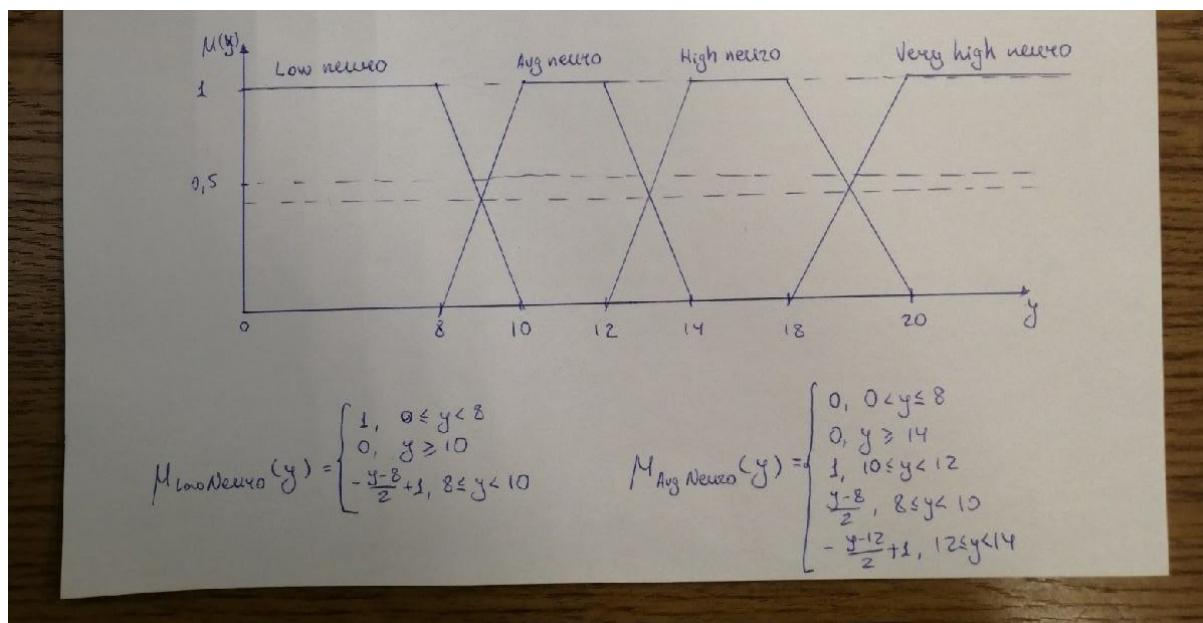 μ(y)
Low neuro Avg neuro High neuro Very high neuro
1
0,5
0 8 10 12 14 18 20 y
μ_LowNeuro(y) = { 1, 0 ≤ y < 8
0, y ≥ 10
-(y-8)/2 + 1, 8 ≤ y < 10
μ_AvgNeuro(y) = { 0, 0 < y ≤ 8
0, y ≥ 14
1, 10 ≤ y < 12
(y-8)/2, 8 ≤ y < 10
-(y-12)/2 + 1, 12 ≤ y < 14